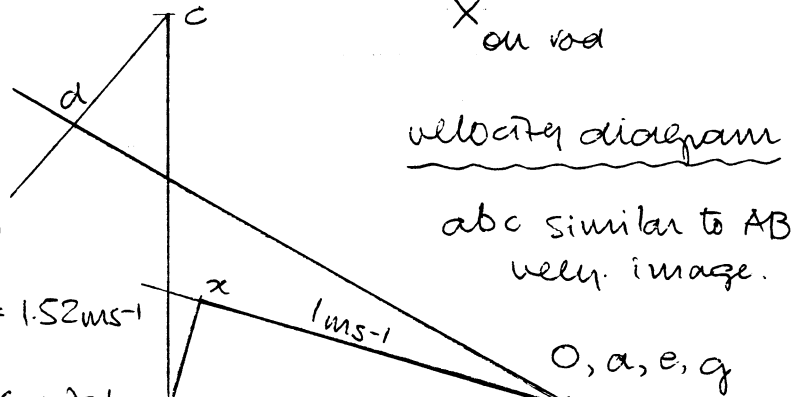 c
X
on rod
d
velocity diagram
abc similar to AB
vely. image.
x
= 1.52ms-1
1ms-1
O, a, e, g